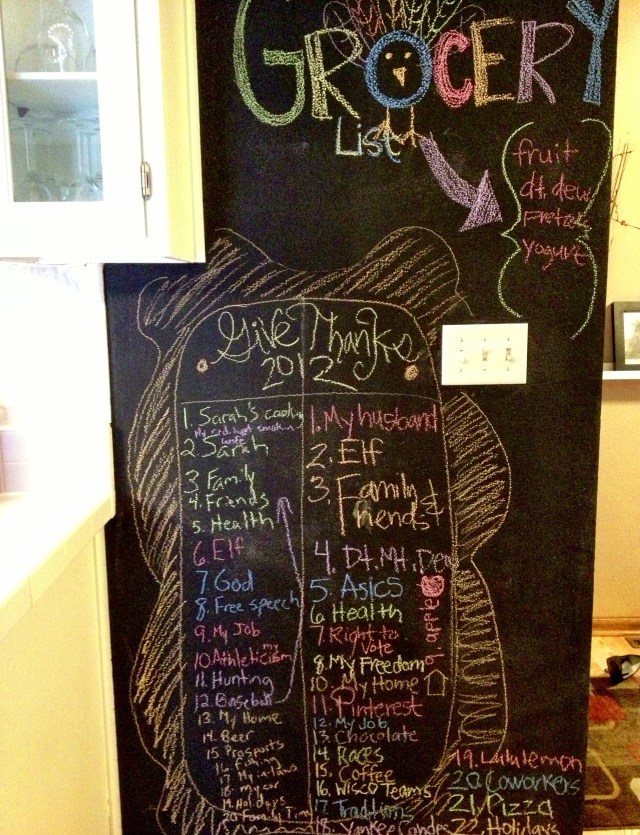 GROCERY
List
fruit
dt. dew
Pretzels
yogurt
Give Thanks
2012
1. Sarah's cooking
My sid. hot smokin
wife
2. Sarah
3. Family
4. Friends
5. Health
6. Elf
7. God
8. Free speech
9. My Job
10. my Athleticism
11. Hunting
12. Baseball
13. My Home
14. Beer
15. Pro sports
16. Fishing
17. My in-laws
18. My car
19. Holidays
20. Family Time
1. My husband
2. Elf
3. Family &
Friends
4. Dt. Mt. Dew
5. Asics
6. Health
7. Right to
Vote
8. My Freedom
9. apple
10. My Home
11. Pinterest
12. My Job
13. Chocolate
14. Races
15. Coffee
16. Wisco Teams
17. Traditions
18. Yankee Candles
19. Lululemon
20. Coworkers
21. Pizza
22. Holidays